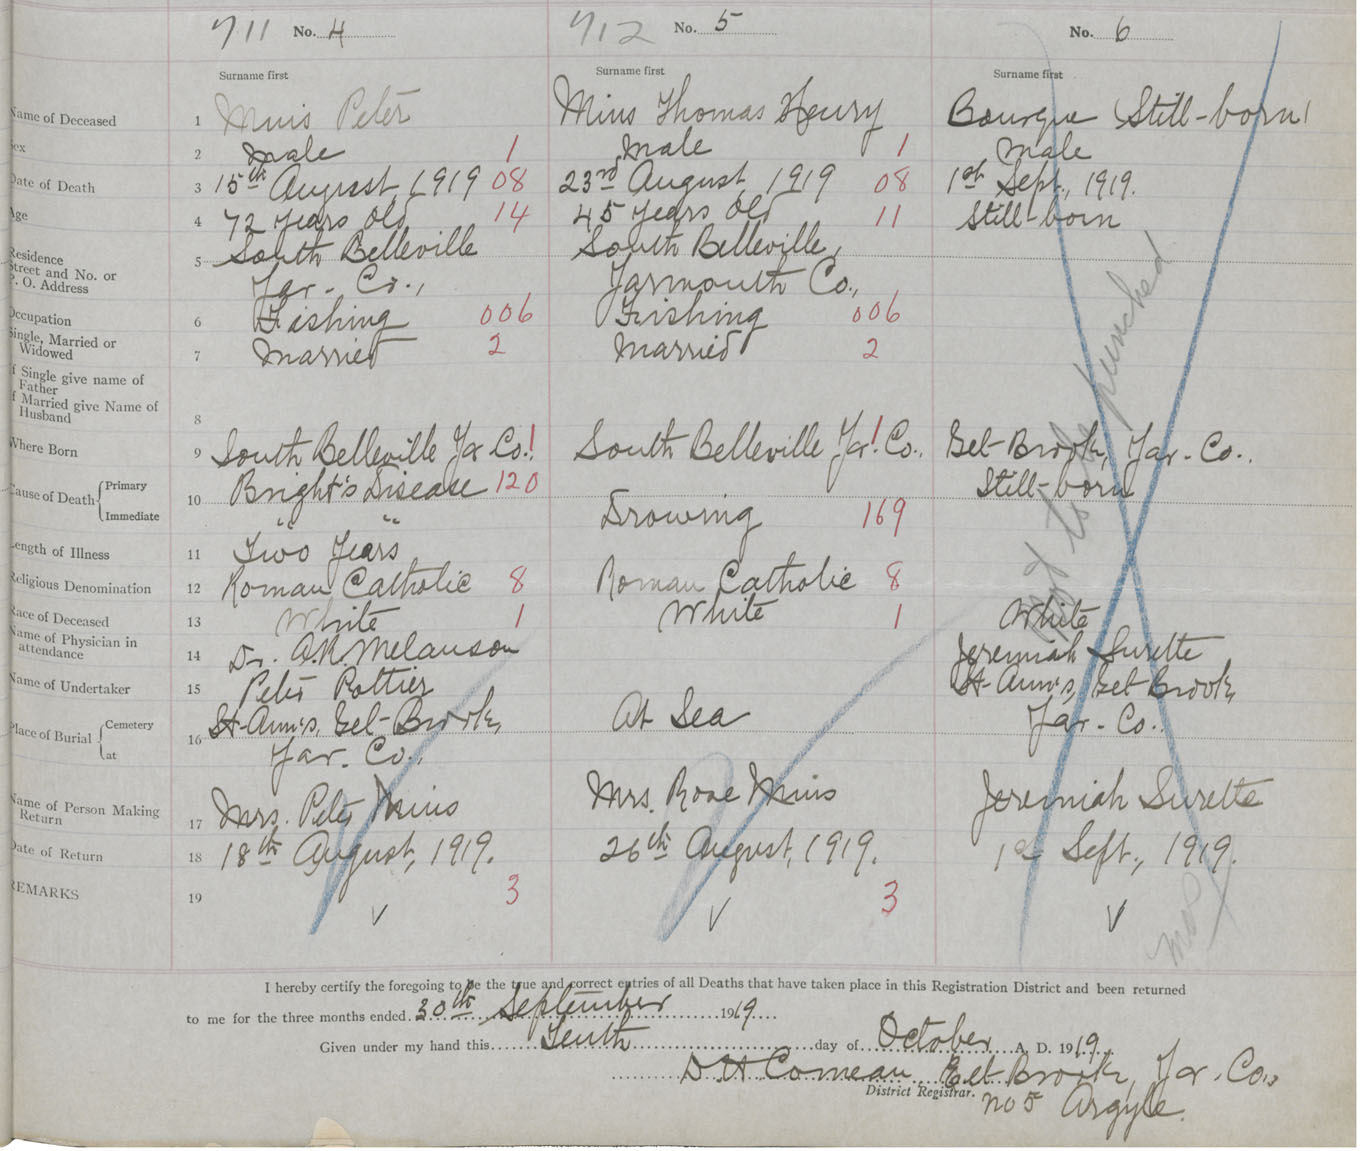 711 No. 4
Surname first
Name of Deceased 1 Muis Peter
Sex 2 Male 1
Date of Death 3 15th August, 1919 08
Age 4 72 Years Old 14
Residence Street and No. or P. O. Address 5 South Belleville
Yar. Co.,
Occupation 6 Fishing 006
Single, Married or Widowed 7 Married 2
If Single give name of Father
If Married give Name of Husband 8
Where Born 9 South Belleville Yar Co. 1
Cause of Death Primary 10 Bright's Disease 120
Immediate " "
Length of Illness 11 Two Years
Religious Denomination 12 Roman Catholic 8
Race of Deceased 13 White 1
Name of Physician in attendance 14 Dr. A.R. Melanson
Name of Undertaker 15 Peter Pottier
Place of Burial Cemetery at 16 St-Ann's, Eel-Brook,
Yar. Co.,
Name of Person Making Return 17 Mrs. Peter Muis
Date of Return 18 18th August, 1919.
REMARKS 19 3
V
712 No. 5
Surname first
Mius Thomas Henry
Male 1
23rd August, 1919 08
45 Years Old 11
South Belleville,
Yarmouth Co.,
Fishing 006
Married 2
South Belleville Yar. Co., 1
Drowing 169
Roman Catholic 8
White 1
At Sea
Mrs. Rose Muis
26th August, 1919.
3
V
No. 6
Surname first
Bourque (Still-born)
Male
1st Sept., 1919.
Still-born
Eel-Brook, Yar. Co.,
Still-born
White
Jeremiah Surette
St-Ann's, Eel-Brook,
Yar. Co.,
Jeremiah Surette
1st Sept., 1919.
V
Not to be punched
I hereby certify the foregoing to be the true and correct entries of all Deaths that have taken place in this Registration District and been returned
to me for the three months ended 30th September 1919
Given under my hand this Tenth day of October A. D. 1919
D H Comeau Eel-Brook, Yar. Co.,
District Registrar. No 5 Argyle.